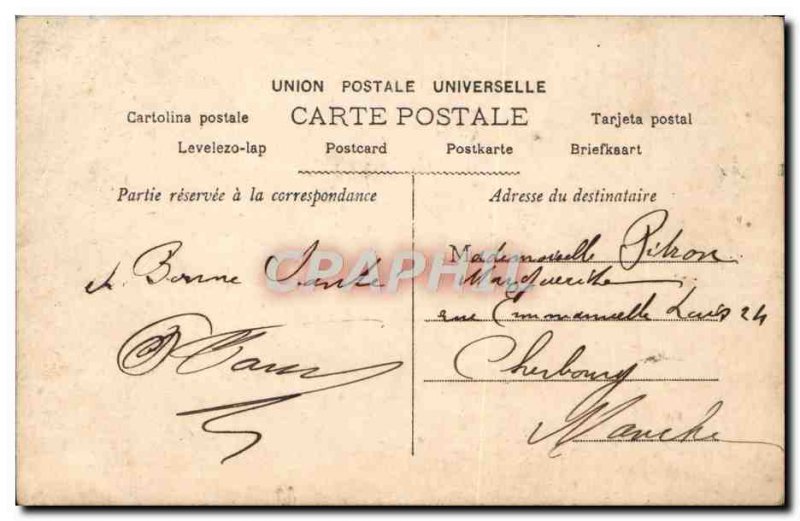 UNION POSTALE UNIVERSELLE
Cartolina postale CARTE POSTALE Tarjeta postal
Levelezo-lap Postcard Postkarte Briefkaart
Partie réservée à la correspondance
et Bonne Santé
Adresse du destinataire
Mademoiselle Pitron
Marguerite
rue Emmanuelle Louis 24
Cherbourg
Manche
CPRAPHIL